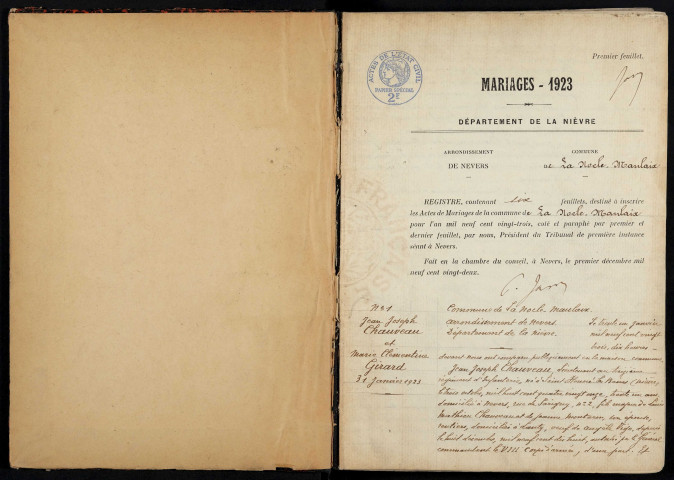 Premier feuillet.
ACTES DE L'ÉTAT CIVIL
PAPIER SPÉCIAL
2F
MARIAGES - 1923
DÉPARTEMENT DE LA NIÈVRE
ARRONDISSEMENT
DE NEVERS
COMMUNE
DE La Nocle-Maulaix
REGISTRE, contenant six feuillets, destiné à inscrire
les Actes de Mariages de la commune de La Nocle-Maulaix
pour l'an mil neuf cent vingt-trois, coté et paraphé par premier et
dernier feuillet, par nous, Président du Tribunal de première instance
séant à Nevers.
Fait en la chambre du conseil, à Nevers, le premier décembre mil
neuf cent vingt-deux.
N° 1
Jean Joseph
Chauveau
et
Marie Clémentine
Girard
31 Janvier 1923
Commune de La Nocle-Maulaix
arrondissement de Nevers
Département de la Nièvre.
Le trente un janvier
mil neuf cent vingt
trois, dix heures
devant nous ont comparu publiquement en la maison commune
Jean Joseph Chauveau, lieutenant au
régiment d'infanterie, né à Saint
octobre, mil huit cent quatre vingt onze, trente un ans
domicilié à Nevers, rue de n° 2, fils majeur de
Mathieu Chauveau et de son épouse,
rentiers, domiciliés à veuf de depuis
le huit mil neuf cent dix huit, autorisé par le Général
commandant le VIII corps d'armée, d'une part. Et